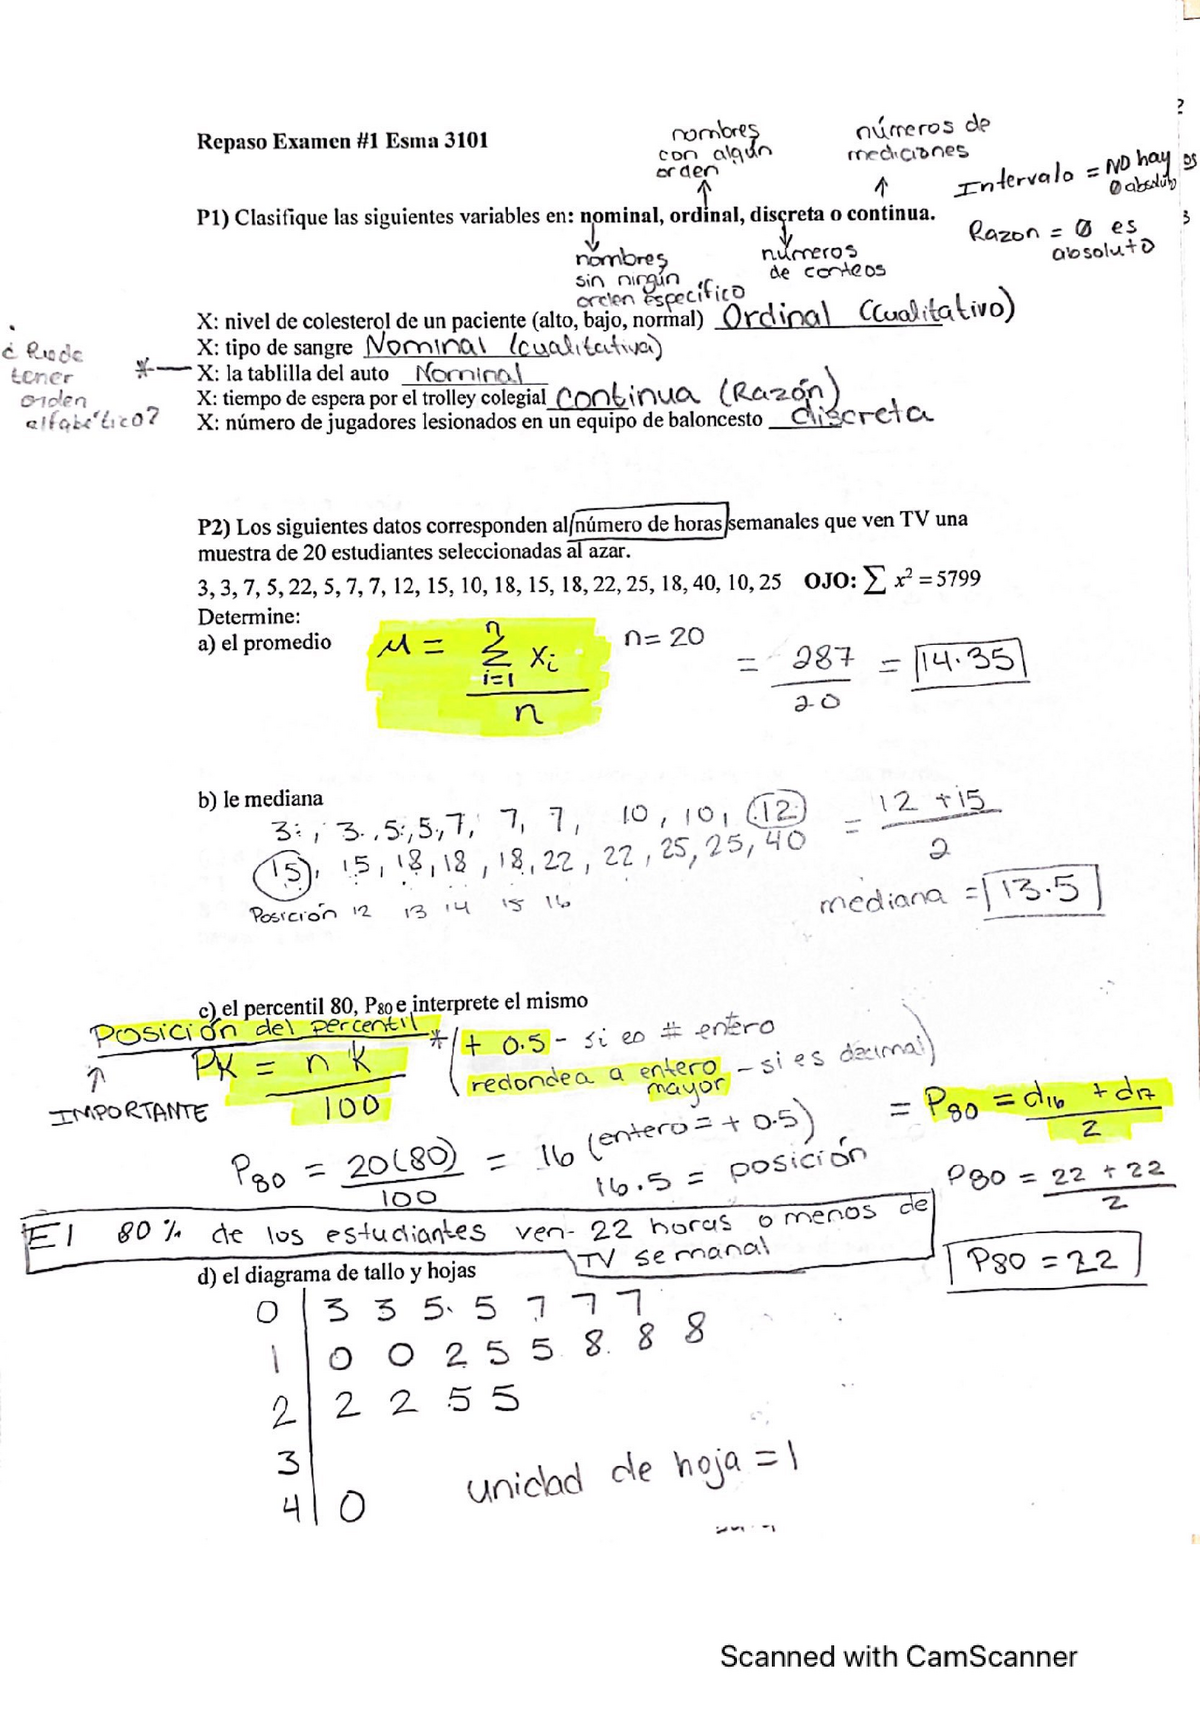 Repaso Examen #1 Esma 3101
nombres
con algún
orden
números de
mediciones
Intervalo = NO hay
0 absoluto
P1) Clasifique las siguientes variables en: nominal, ordinal, discreta o continua.
Razon = 0 es
absoluto
nombres
sin ningún
orden específico
números
de conteos
X: nivel de colesterol de un paciente (alto, bajo, normal) Ordinal (Cualitativo)
X: tipo de sangre Nominal (cualitativa)
X: la tablilla del auto Nominal
X: tiempo de espera por el trolley colegial continua (Razón)
X: número de jugadores lesionados en un equipo de baloncesto discreta
¿ Puede
tener
orden
alfabético?
*
P2) Los siguientes datos corresponden al número de horas semanales que ven TV una
muestra de 20 estudiantes seleccionadas al azar.
3, 3, 7, 5, 22, 5, 7, 7, 12, 15, 10, 18, 15, 18, 22, 25, 18, 40, 10, 25 OJO: ∑ x² = 5799
Determine:
a) el promedio
μ = n ∑ i=1 xi / n
n = 20
= 287 / 20 = 14.35
b) le mediana
3, 3, 5, 5, 7, 7, 7, 10, 10, 12
15, 15, 18, 18, 18, 22, 22, 25, 25, 40
Posición 12 13 14 15 16
= 12 + 15 / 2
mediana = 13.5
c) el percentil 80, P80 e interprete el mismo
Posición del percentil
PK = n K / 100
IMPORTANTE
* ( + 0.5 - si es # entero
redondea a entero mayor - si es decimal)
P80 = 20(80) / 100 = 16 (entero = + 0.5)
16.5 = posición
= P80 = d16 + d17 / 2
P80 = 22 + 22 / 2
P80 = 22
El 80% de los estudiantes ven 22 horas o menos de
TV semanal
d) el diagrama de tallo y hojas
0 | 3 3 5 5 7 7 7
1 | 0 0 2 5 5 8 8 8
2 | 2 2 5 5
3 |
4 | 0
unidad de hoja = 1
Scanned with CamScanner